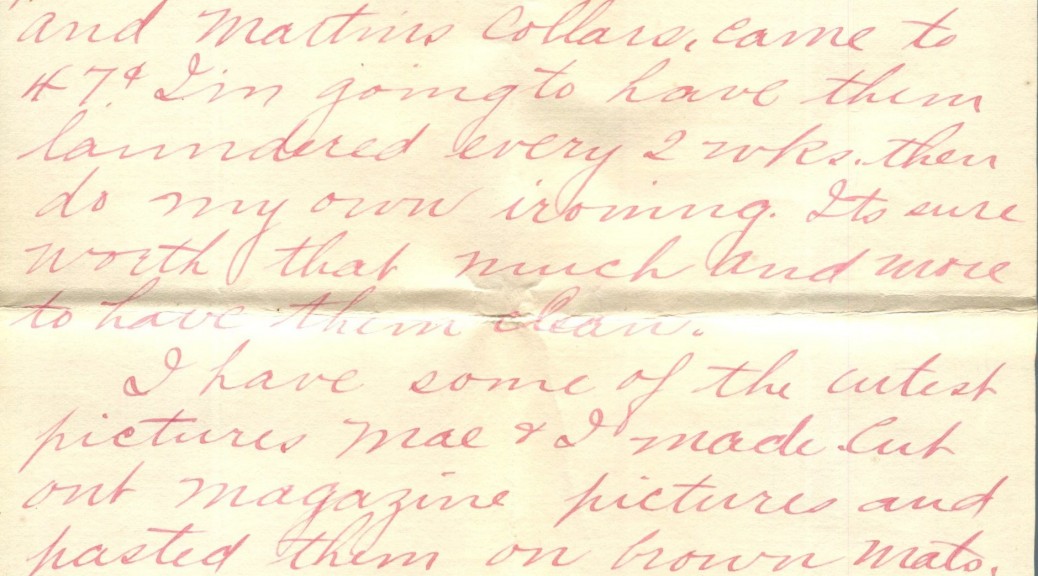 and Martins Collars, came to
47¢ I'm going to have them
laundered every 2 wks. then
do my own ironing. Its sure
worth that much and more
to have them clean.
I have some of the cutest
pictures Mae & I made. Cut
out magazine pictures and
pasted them on brown mats.